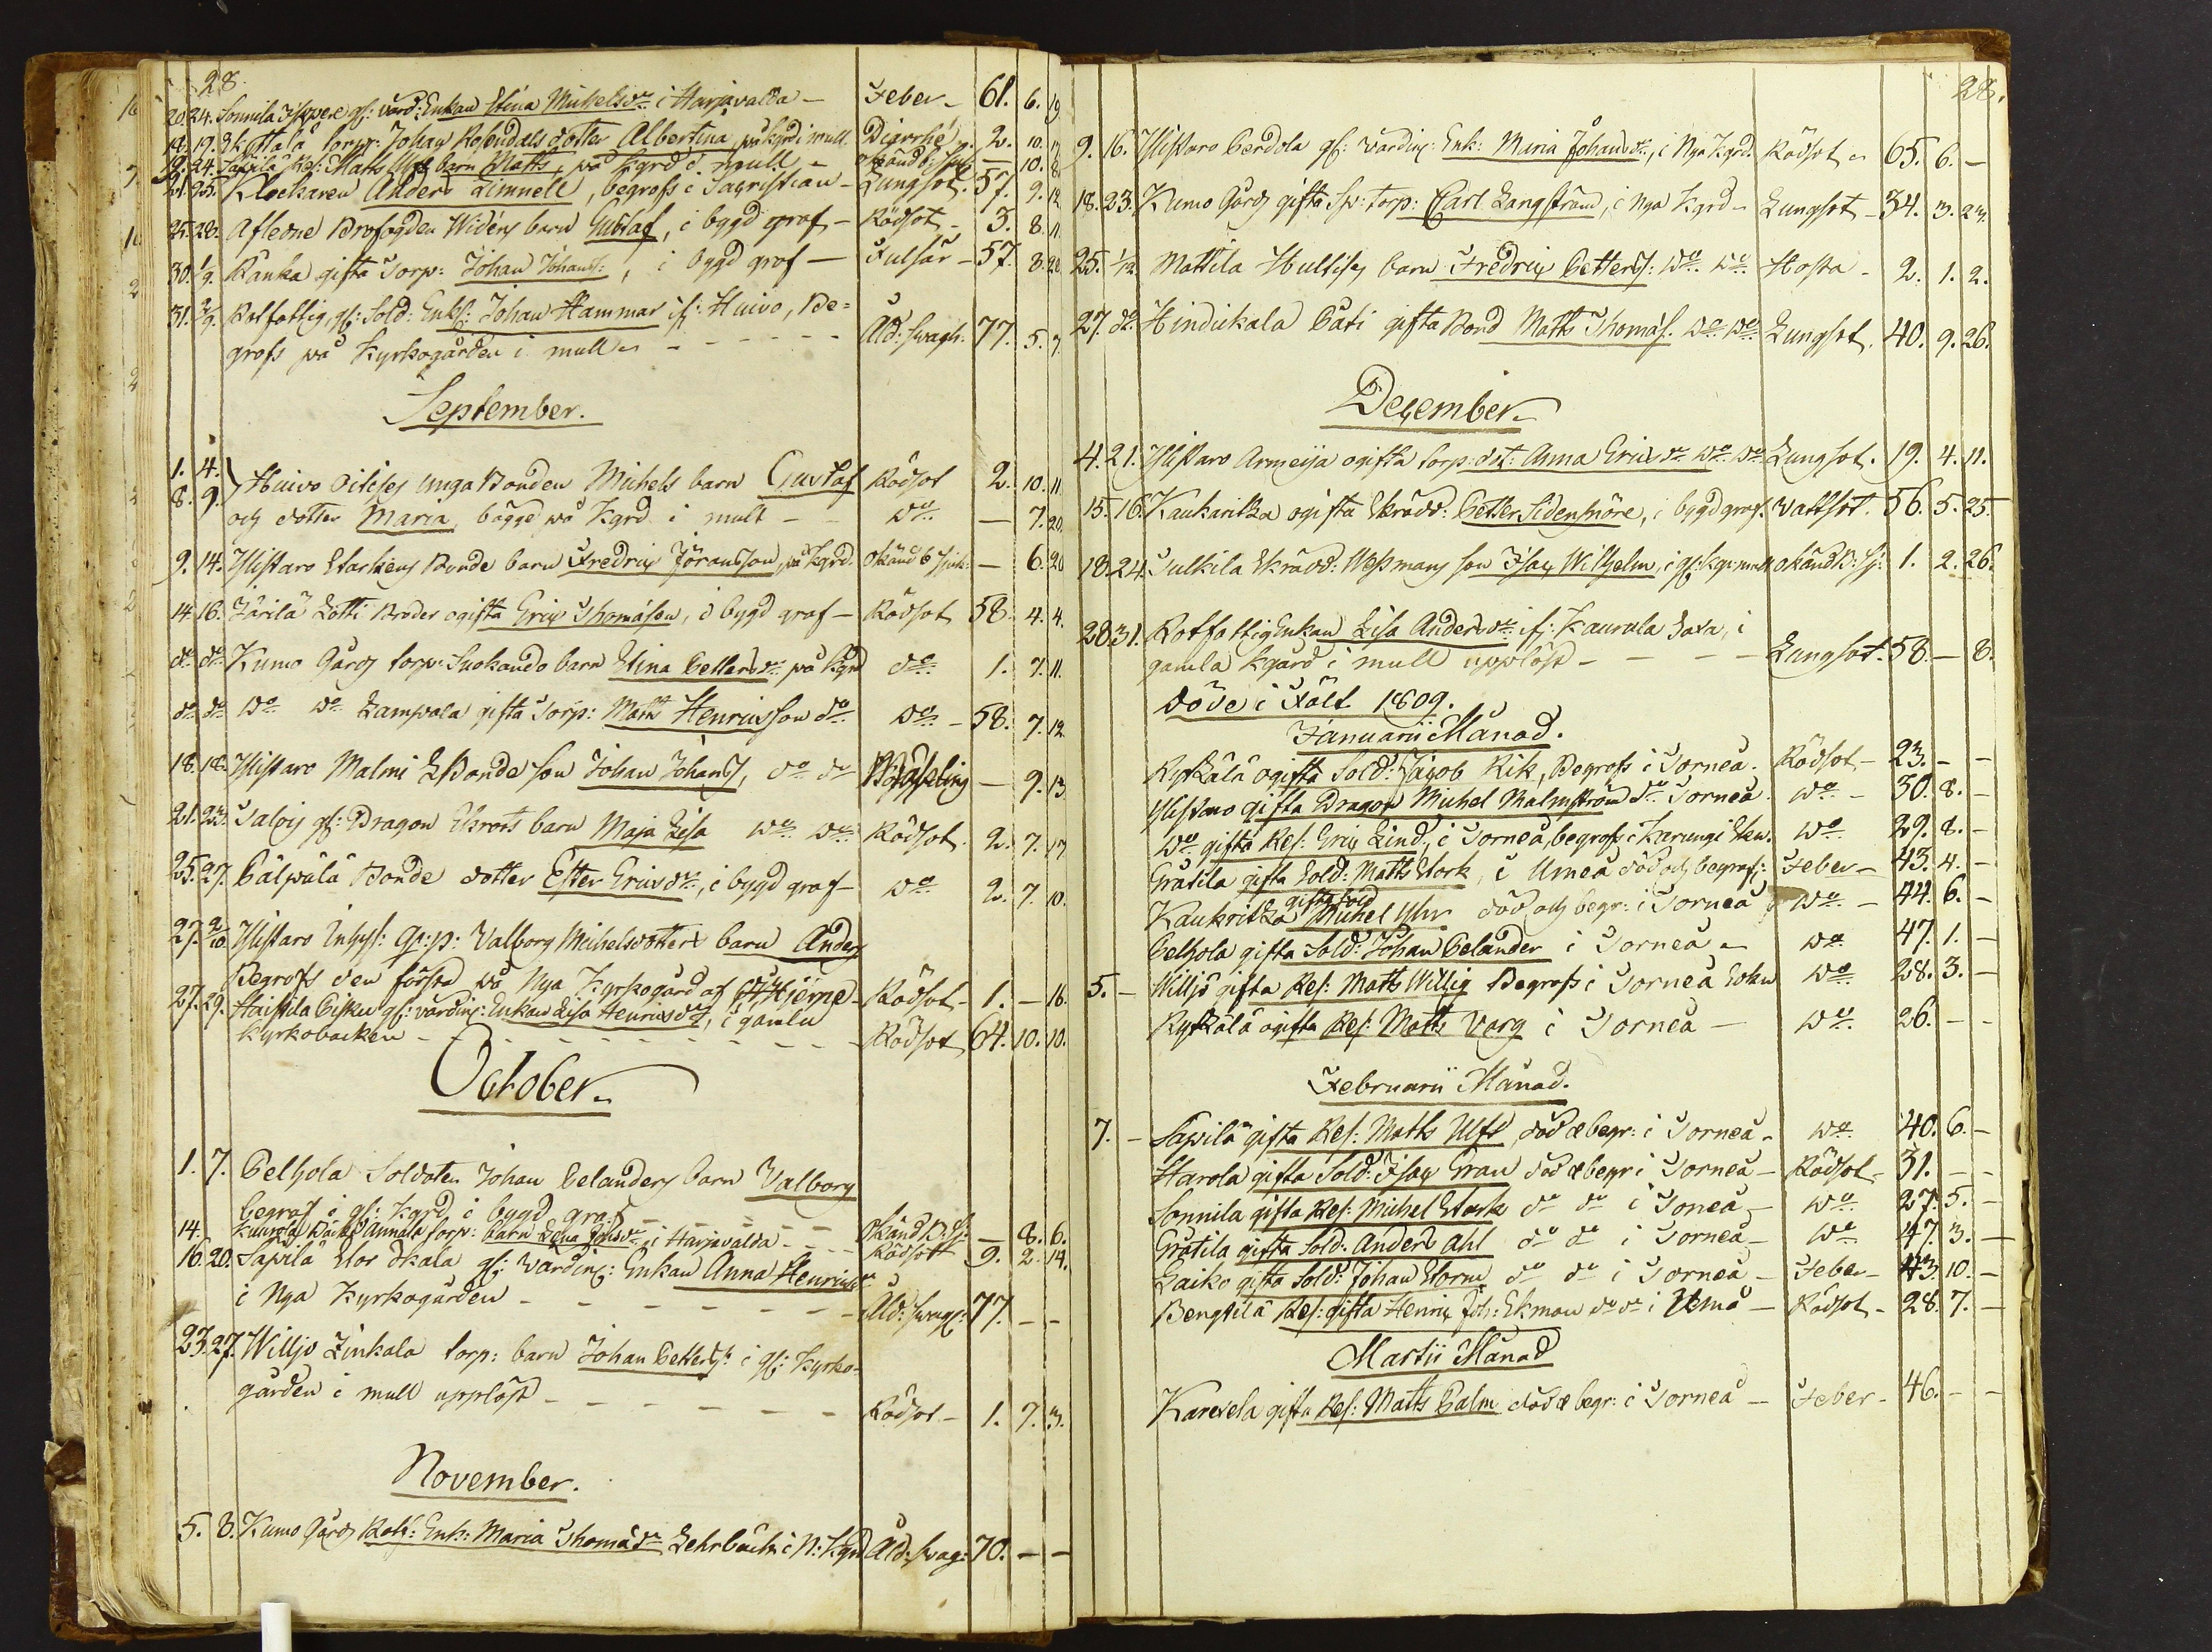 28.
20. 24. Sonnila Isspere gf: värd: Enkan Stina Michelsdr i Harjavalda - Feber - 61. 6. 19
18. 19. Torp: Johan Rosendals dotter Albertina, på kgrd i mull. Diarrhé. 2. 10. 11
19. 24. Sapilä Res: Matts Ulfs barn Matts, på kgrd i mull - okänd b: sjuk - 10. 8.
21. 25. Klockaren Anders Limnell, begrofs i Sacristian - Lungsot. 57. 9. 12.
25. 28. Afledne Brofogden Widéns barn Gustaf, i bygd graf - Rödsot - 3. 8. 11.
30. 1/9. Ranka gifta Torp: Johan Johanss:, i bygd graf - Fulsår - 57. 8. 20.
31. 2/9. Rotfattig, gf: Sold: Enkl: Johan Hammar if: Huivo, Be=
grofs på Kyrkogården i mull - - - - - - Åld: swagh: 77. 5. 7.
September.
1. 4. Huivo Oitises unga Bonden Michels barn Gustaf Rödsot 2. 10. 11
8. 9. och dotter Maria, bägge på Kgrd i mull - - Do - 7. 20.
9. 14. Ylistaro Starkens Bonde barn Fredric Jöransson, på Kgrd. okänd b sjuk: - 6. 20
14. 16. Järilä Lotti Broder ogifta Eric Thomasson, i bygd graf - Rödsot 58. 4. 4.
do do Kumo Gårds torp: Suokando barn Stina Pettersdr på Kgrd do 1. 7. 11.
do do Do Do Lampola gifta Torp: Matts Henricsson do Do - 58. 7. 12
18. 18. Ylistaro Malmi Bonde son Johan Johanss, do do - 9. 13
21. 23. Talois gf: Dragon Skrots barn Maja Lisa Do Do Rödsot. 2. 7. 17
25. 27. Pälpälä Bonde dotter Ester Ericsdr, i bygd graf - Do 2. 7. 10.
27. 2/10 Ylistaro Inhys: Valborg Michelsdotters barn Anders
Begrofs den första på Nya Kyrkogård af Hjerpe - Rödsot - 1. - 16.
27. 29. Haistila Pisku gf: värdin: Enkan Lisa Henricsdr, i gamla
kyrkobacken - - - - - - Rödsot 64. 10. 10.
October.
1. 7. Pelhola Soldaten Johan Pelanders barn Valborg
begrofs i gl: Kgrd i bygd graf - - - - Okänd B: sj: - 8. 6.
14. Kaurola Annala torp: barn Lena Johsdr i Harjavalda - - Rödsott 9. 2. 14.
16. 20. Sapilä Stor Skala gf: Värdin: Enkan Anna Henricsdr
i Nya Kyrkogården - - - - - - Åld: swagh: 77. - -
23. 27. Willjo Linkala torp: barn Johan Petterss: i gl: Kyrko=
gården i mull upplöst - - - - - - Rödsot - 1. 7. 3.
November.
5. 8. Kumo Gårds Rotf: Enk: Maria Thomasdr Lehrbäck i N: Kgrd Åld: swag: 70. - -
28.
9. 16. Ylistaro Perdola gf: värdin: Enk: Maria Johansdr, i Nya Kgrd. Rödsot - 65. 6. -
18. 23. Kumo Gårds gifta Sp: torp: Carl Langström, i Nya Kgrd - Lungsot - 34. 3. 23.
25. 1/12. Mattila Hultises barn Fredric Petterss: Do Do Hosta - 2. 1. 2.
27. do Hindickala Päti gifta Bond Matts Thomass. Do Do Lungsot. 40. 9. 26.
December.
4. 21. Ylistaro Armeija ogifta torp: dot: Anna Ericsdr Do Do Lungsot. 19. 4. 11.
15. 16. Kaukaritza ogifta Skrädd: Petter Sidensnöre, i bygd graf. Vattsot. 56. 5. 25.
18. 24. Tulkila Skrädd: Wessmans son Isac Wilhelm, i gl: kgr: mull okänd B: sj: 1. 2. 26.
28 31. Rotfattig Enkan Lisa Andersdr if: Kaurola Saxa, i
gamla kgård i mull upplöst - - - - Lungsot. 58. - 8.
Döde i Fält 1809.
Januarii Månad.
Ryskälä ogifta Sold: Jacob Rik, Begrofs i Torneå. Rödsot - 23. - -
Ylistaro gifta Dragon Michel Malmström do Torneå Do - 30. 8. -
Do gifta Res: Eric Lind, i Torneå, begrofs i Karungi Skn. Do 29. 8. -
Gråtila gifta Sold: Matts Stark, i Umeå död och begraf: Feber - 43. 4. -
gifta Sold
Kaukritza Michel Uhr död och begr: i Torneå Do - 44. 6. -
Pelhola gifta Sold: Johan Pelander i Torneå - Do 47. 1. -
5. - Willjo gifta Res: Matts Willig Begrofs i Torneå Sokn Do 28. 3. -
Ryskälä ogifta Res: Matts Varg i Torneå - Do 26. - -
Februarii Månad.
7. - Sapilä gifta Res: Matts Ulft, död & begr: i Torneå - Do 40. 6. -
Harola gifta Sold: Isac Gran död & begr i Torneå - Rödsot - 31. - -
Sonnila gifta Res: Michel Stark do do i Toneå - Do 27. 5. -
Gråtila gifta Sold: Anders Ahl do do i Torneå - Do 47. 3. -
Laiko gifta Sold: Johan Storm do do i Torneå - Feber - 43. 10. -
Bengtilä Res: gifta Henric Joh: Ekman do do i Umå - Rödsot - 28. 7. -
Martii Månad
Karevela gifta Res: Matts Palm död & begr: i Torneå - Feber - 46. - -